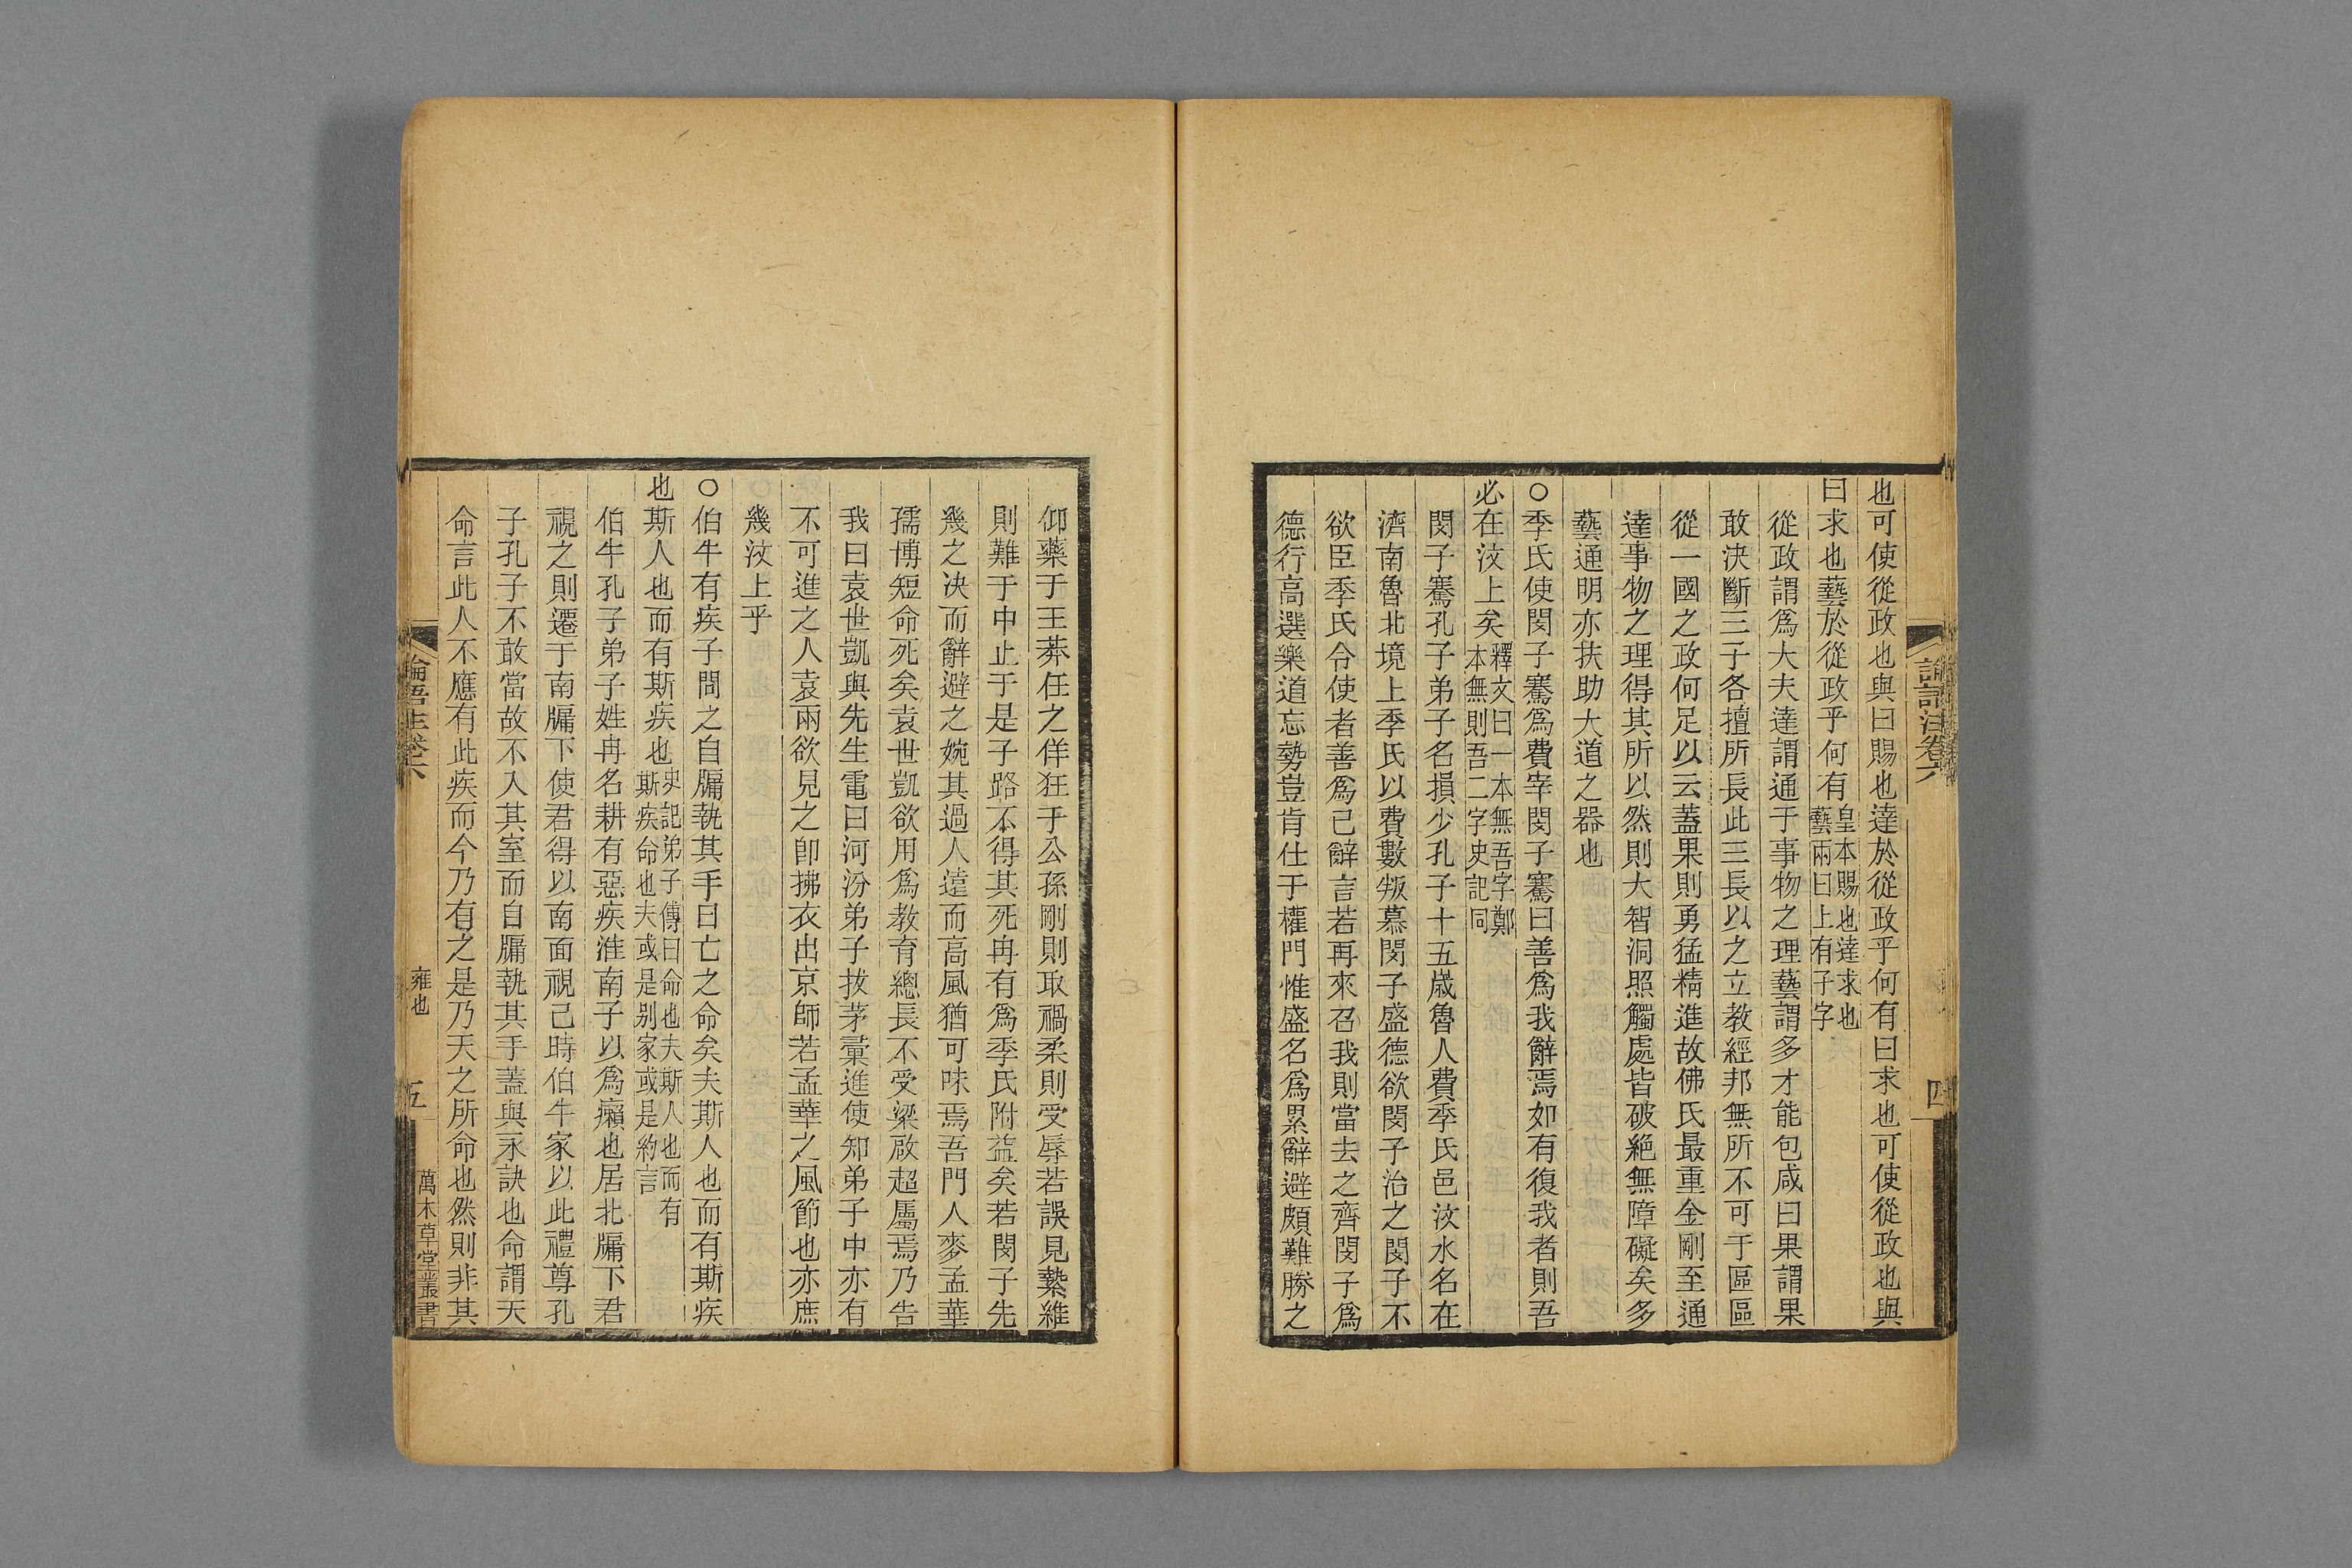 論語注卷六
四
也可使從政也與曰賜也達於從政乎何有曰求也可使從政也與
曰求也藝於從政乎何有
皇本賜也達求也
藝兩曰上有子字
從政謂爲大夫達謂通于事物之理藝謂多才能包咸曰果謂果
敢決斷三子各擅所長此三長以之立教經邦無所不可于區區
從一國之政何足以云蓋果則勇猛精進故佛氏最重金剛至通
達事物之理得其所以然則大智洞照觸處皆破絶無障礙矣多
藝通明亦扶助大道之器也
○季氏使閔子騫爲費宰閔子騫曰善爲我辭焉如有復我者則吾
必在汶上矣
釋文曰一本無吾字鄭
本無則吾二字史記同
閔子騫孔子弟子名損少孔子十五歲魯人費季氏邑汶水名在
濟南魯北境上季氏以費數叛慕閔子盛德欲閔子治之閔子不
欲臣季氏令使者善爲己辭言若再來召我則當去之齊閔子爲
德行高選樂道忘勢豈肯仕于權門惟盛名爲累辭避頗難勝之
仰藥于王莽任之佯狂于公孫剛則取禍柔則受辱若誤見縶維
則難于中止于是子路不得其死冉有爲季氏附益矣若閔子先
幾之决而辭避之婉其過人遠而高風猶可味焉吾門人麥孟華
孺博短命死矣袁世凱欲用爲教育總長不受梁啟超屬焉乃告
我曰袁世凱與先生電曰河汾弟子拔茅彙進使知弟子中亦有
不可進之人袁兩欲見之卽拂衣出京師若孟華之風節也亦庶
幾汶上乎
○伯牛有疾子問之自牖執其手曰亡之命矣夫斯人也而有斯疾
也斯人也而有斯疾也
史記弟子傳曰命也夫斯人也而有
斯疾命也夫或是别家或是約言
伯牛孔子弟子姓冉名耕有惡疾淮南子以爲癩也居北牖下君
視之則遷于南牖下使君得以南面視己時伯牛家以此禮尊孔
子孔子不敢當故不入其室而自牖執其手蓋與永訣也命謂天
命言此人不應有此疾而今乃有之是乃天之所命也然則非其
論語注卷六
雍也
五
萬木草堂叢書